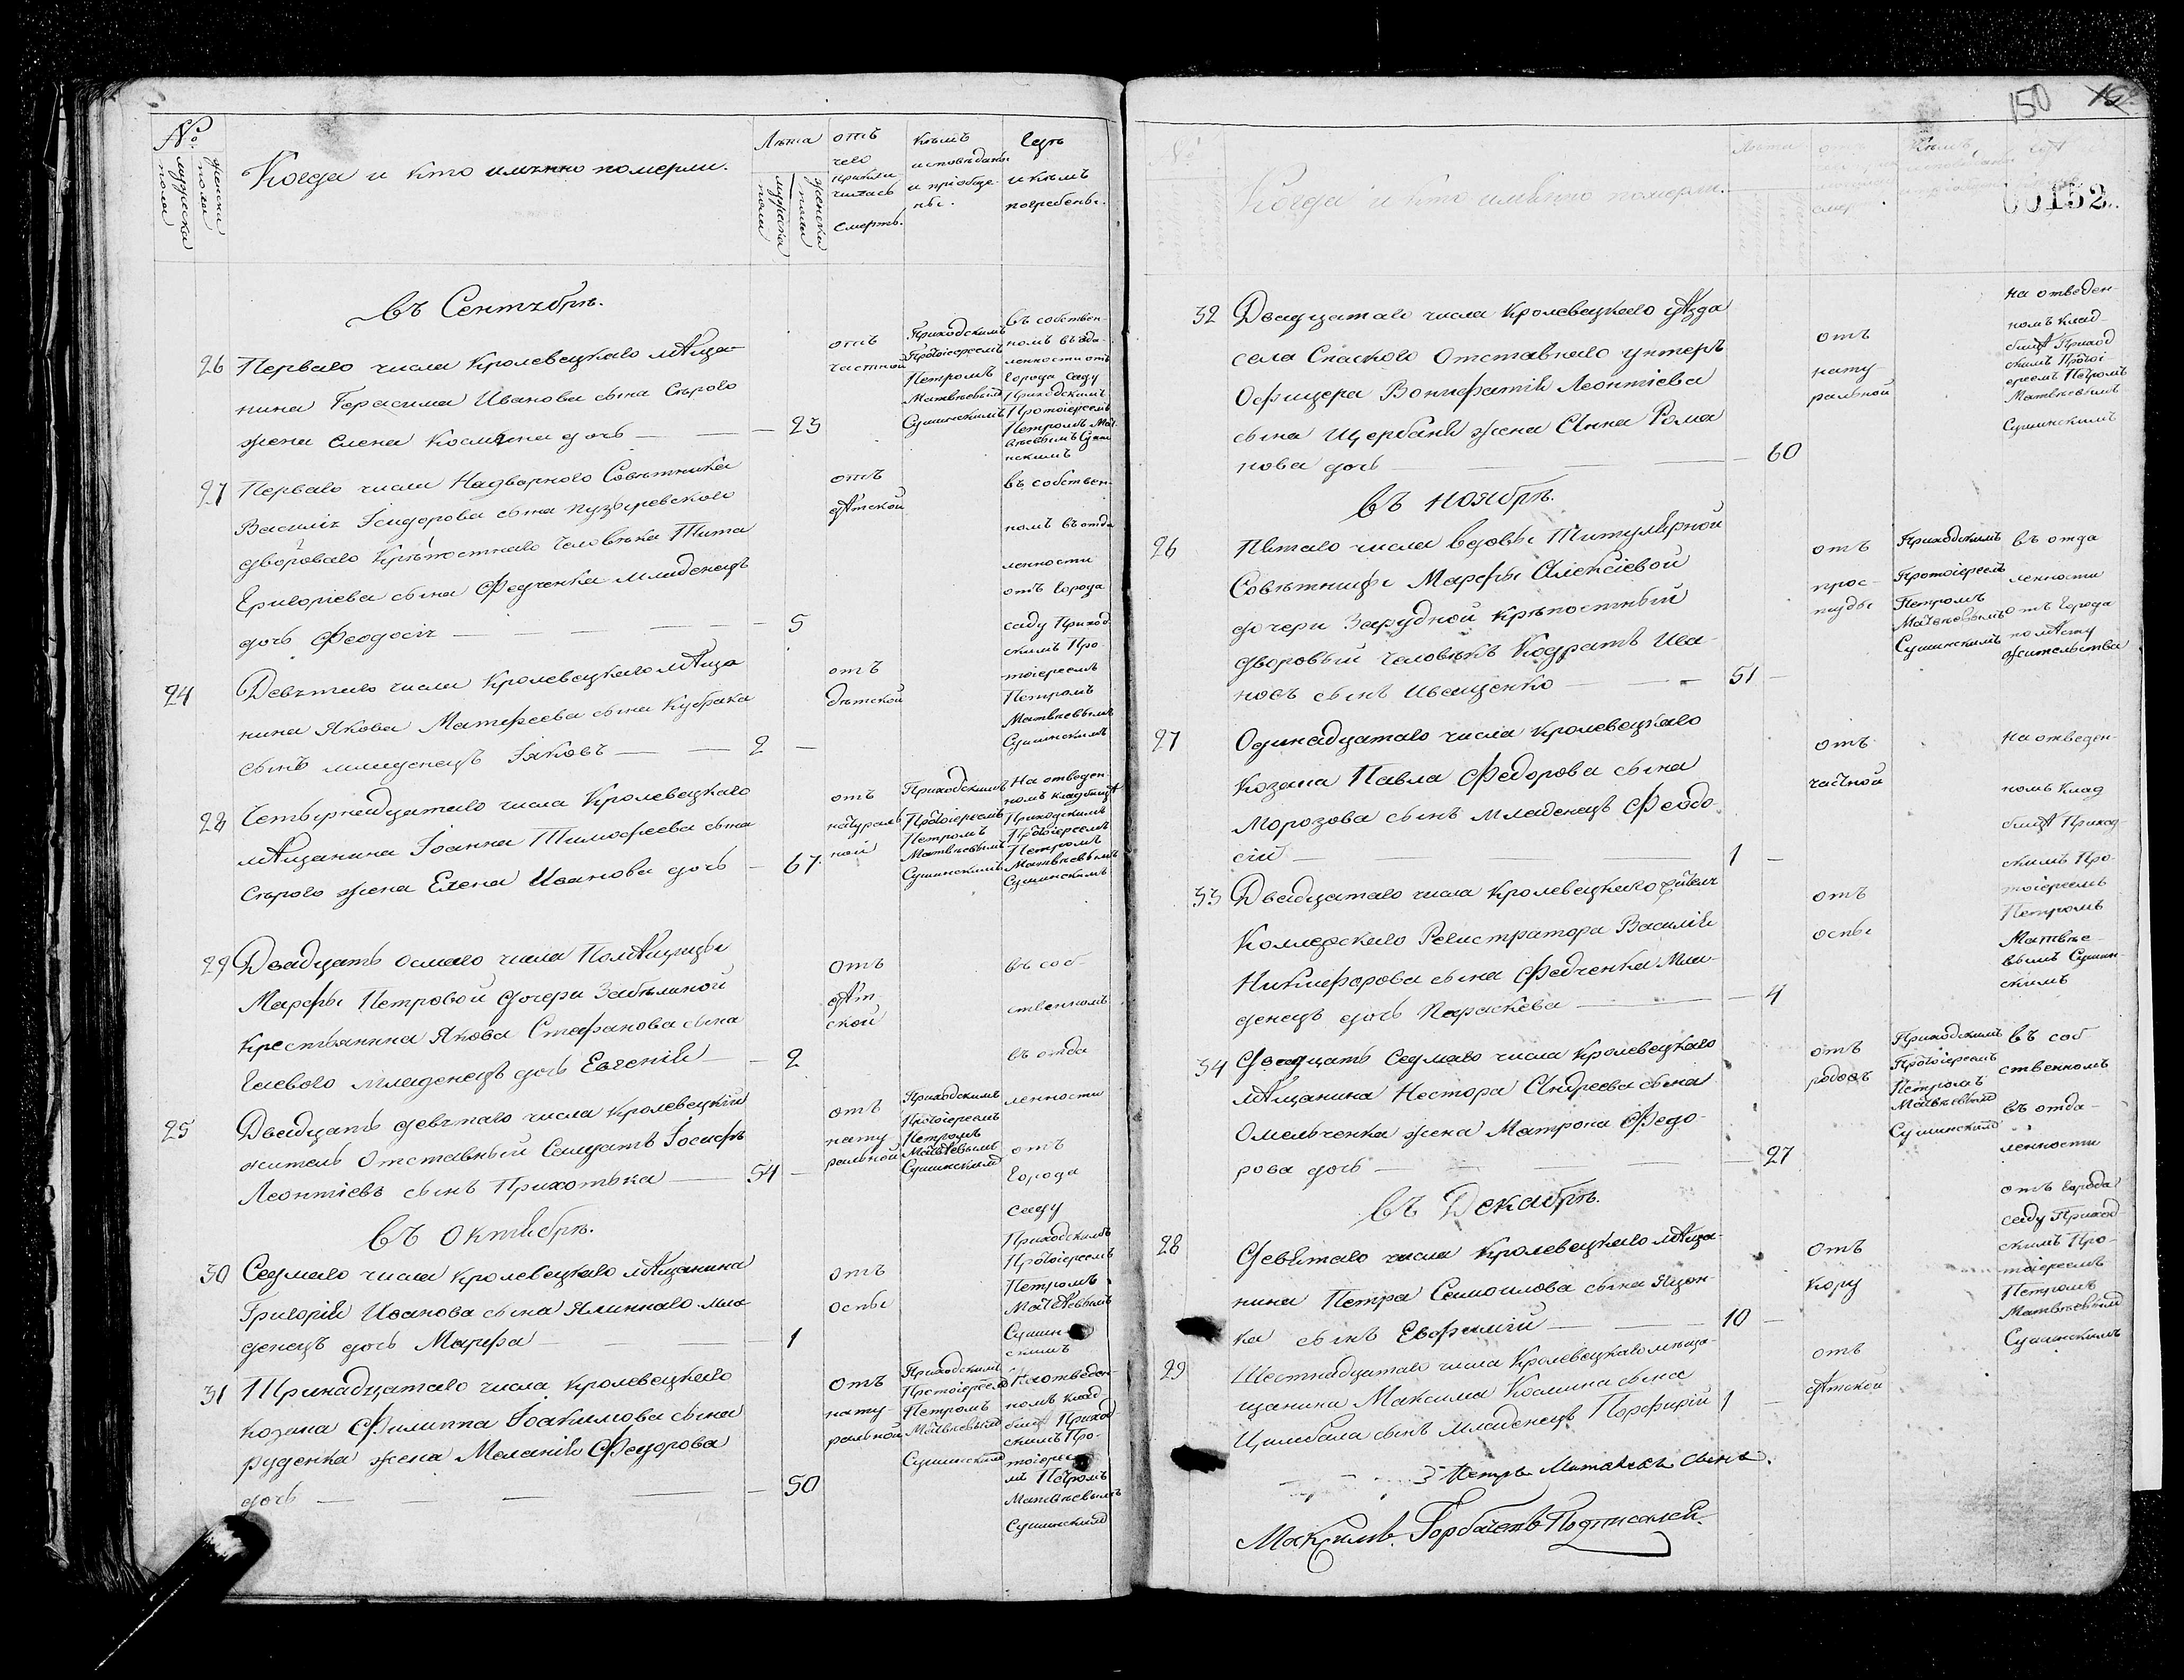 №
мужеска пола
женска пола
Когда и кто имянно померли.
Лѣта
мужеска пола
женска пола
отъ чего приключилась смерть.
кѣмъ исповѣданы и пріобщены.
Гдѣ и кѣмъ погребены.
Въ Сентябрѣ.
26 Перваго числа Кролевецкаго мѣща-
нина Герасима Иванова сына Сѣрого
жена Елена Космина дочь — — 23
отъ
частной
Приходскимъ
Протоіереемъ
Петромъ
Матвѣевымъ
Сушинскимъ
въ собствен-
номъ въ отда-
ленности отъ
Города саду
Приходскимъ
Протоіереемъ
Петромъ Мат-
вѣевымъ Суши-
нскимъ
27 Перваго числа Надворнаго Совѣтника
Василія Ісидорова сына Пузыревскаго
двороваго Крѣпостнаго Человѣка Тита
Григоріева сына Федченка младенецъ
дочь Феодосія — — — 5
отъ
дѣтской
въ собствен-
номъ въ отда
ленности
отъ Города
саду Приход
скимъ Про
тоіереемъ
Петромъ
Матвѣевымъ
Сушинскимъ
24 Девятаго числа Кролевецкаго мѣща
нина Якова Матфеева сына Кубрака
сынъ младенецъ Іаковъ — — 2 —
отъ
дѣтской
28 Четырнадцатаго числа Кролевецкаго
мѣщанина Іоанна Тимофеева сына
Сѣрого жена Елена Иванова дочь — 67.
отъ
натураль
ной
Приходскимъ
Протоіереемъ
Петромъ
Матвѣевымъ
Сушинскимъ
На отведен-
номъ кладбищѣ
Приходскимъ
Протоіереемъ
Петромъ
Матвѣевымъ
Сушинскимъ
29 Двадцать осмаго числа Помѣщицы
Марфы Петровой дочери Забѣлиной
Крестьянина Якова Стефанова сына
младенецъ дочь Евгенія — 2
отъ
дѣт
ской
въ соб-
ственномъ
въ отда
ленности
отъ
Города
саду
Приходскимъ
Протоіереемъ
Петромъ
Матвѣевымъ
Сушин-
скимъ
25 Двадцать девятаго числа Кролевецкій
житель Отставный Солдатъ Іосифъ
Леонтіевъ сынъ Прихотька — 54 —
отъ
нату
ральной
Приходскимъ
Протоіереемъ
Петромъ
Матвѣевымъ
Сушинскимъ
Въ Октябрѣ.
30 Седмаго числа Кролевецкаго мѣщанина
Григорія Иванова сына Ялиннаго мла
денецъ дочь Марфа — — 1
отъ
оспы
31 Тринадцатаго числа Кролевецкаго
козака Филиппа Іоакимова сына
Руденка жена Меланія Федорова
дочь — — — 50
отъ
нату-
ральной
Приходскимъ
Протоіереемъ
Петромъ
Матвѣевымъ
Сушинскимъ
На отведен-
номъ клад-
бищѣ Приход
скимъ Про-
тоіерее
мъ Петромъ
Матвѣевымъ
Сушинскимъ
150
00152
№
Когда и кто имянно померли.
Лѣта
32 Двадцатаго числа Кролевецкаго уѣзда
села Спаского Отставнаго унтеръ
Офицера Вонифатія Леонтіева
сына Щербаня жена Анна Рома
нова дочь — — 60
отъ
нату
ральной
на отведен-
номъ клад-
бищѣ Приход
скимъ Протоі
ереемъ Петромъ
Матвѣевымъ
Сушинскимъ
Въ Ноябрѣ.
26 Пятаго числа вдовы Титулярной
Совѣтницы Марфы Алексіевой
дочери Зарудной крѣпостный
дворовый Человѣкъ Кодратъ Ива-
новъ сынъ Иващенко — — 51 —
отъ
прос-
туды
Приходскимъ
Протоіереемъ
Петромъ
Матвѣевымъ
Сушинскимъ
въ отда
ленности
отъ Города
по мѣсту
жительства
27 Одинадцатаго числа Кролевецкаго
Козака Павла Федорова сына
Морозова сынъ младенецъ Феодо
сій — 1 —
отъ
частной
на отведен-
номъ клад
бищѣ Приход-
скимъ Про-
тоіереемъ
Петромъ
Матвѣе-
вымъ Сушин
скимъ
33 Двадцатаго числа Кролевецкаго жителя
Коллежскаго Регистратора Василія
Никифорова сына Федченка мла-
денецъ дочь Параскева — — 4
отъ
оспы
34 Двадцать Седмаго числа Кролевецкаго
мѣщанина Нестора Андреева сына
Омельченка жена Матрона Федо-
рова дочь — — — 27
отъ
родовъ
Приходскимъ
Протоіереемъ
Петромъ
Матвѣевымъ
Сушинскимъ
въ соб-
ственномъ
въ отда-
ленности
отъ Города
саду Приход-
скимъ Про-
тоіереемъ
Петромъ
Матвѣевымъ
Сушинскимъ
Въ Декабрѣ.
28 Девятаго числа Кролевецкаго мѣща-
нина Петра Самоилова сына Яцен-
ка сынъ Евфимій — — 10 —
отъ
кору
29 Шестнадцатаго числа Кролевецкаго мѣща-
щанина Максима Космина сына
сынъ младенецъ Порфирій 1 —
отъ
дѣтской
Петръ
Максимъ Горбаченъ Подписался.